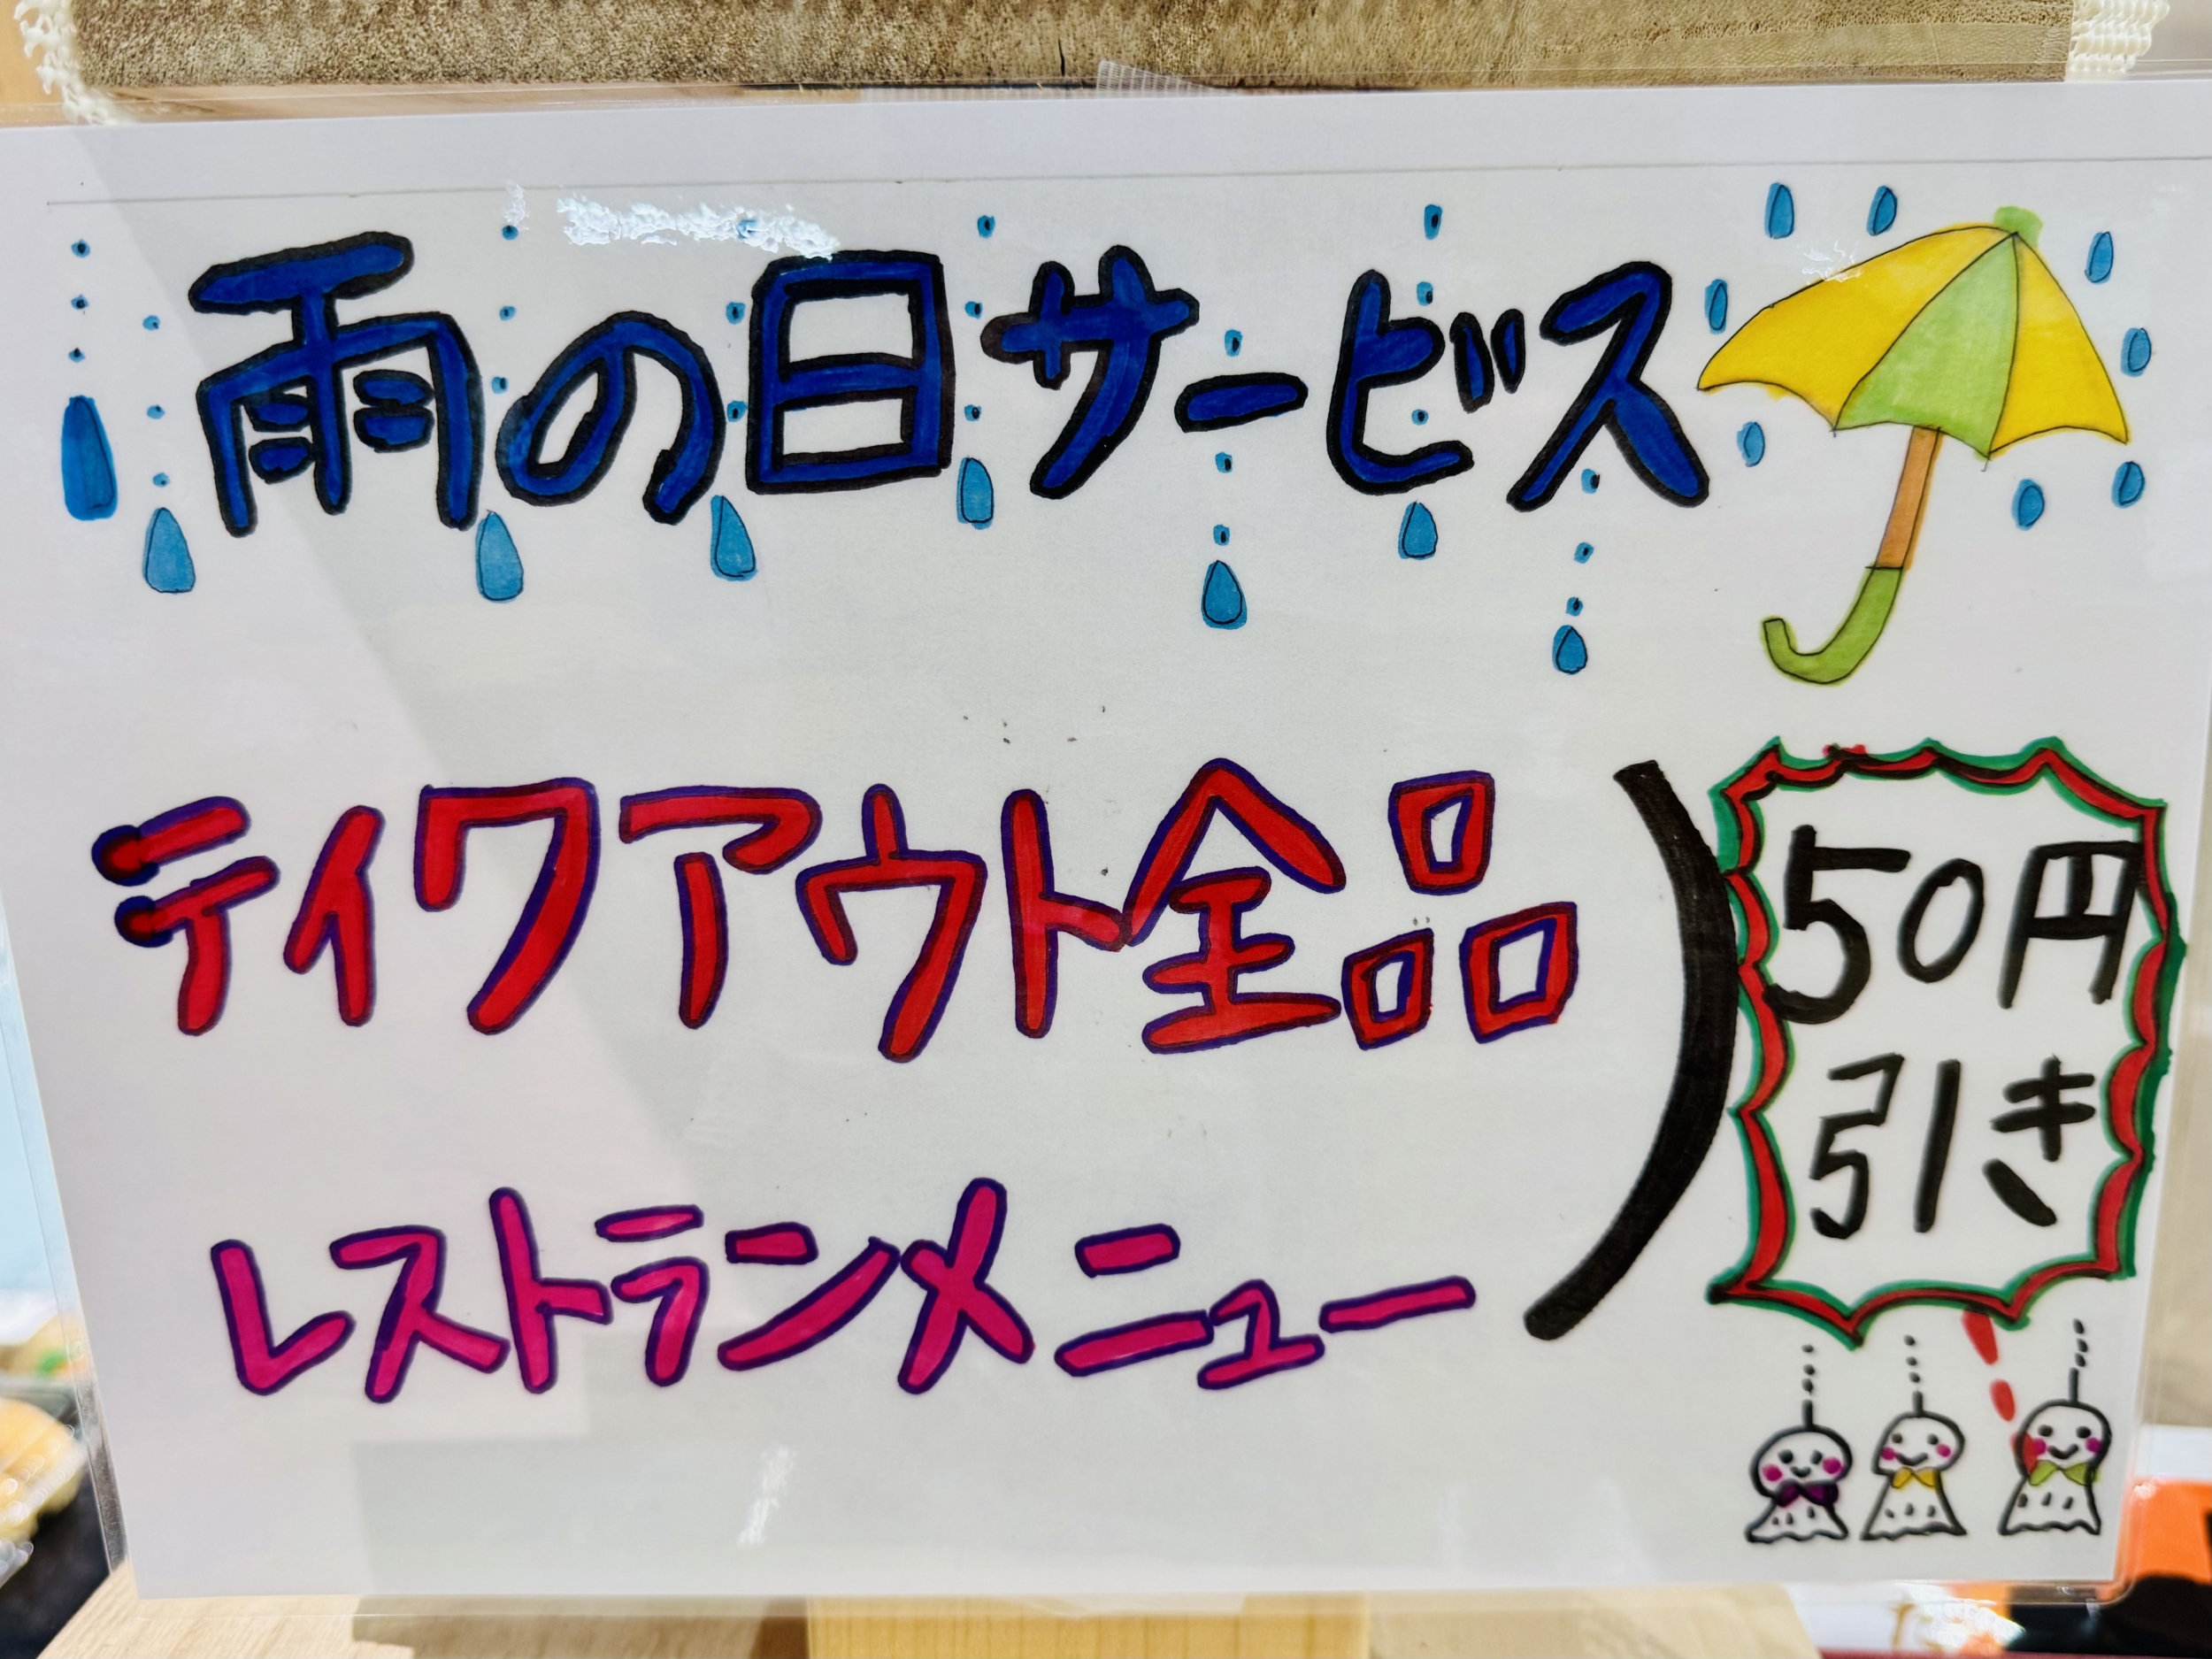 雨の日サービス
テイクアウト全品
レストランメニュー
50円
引き